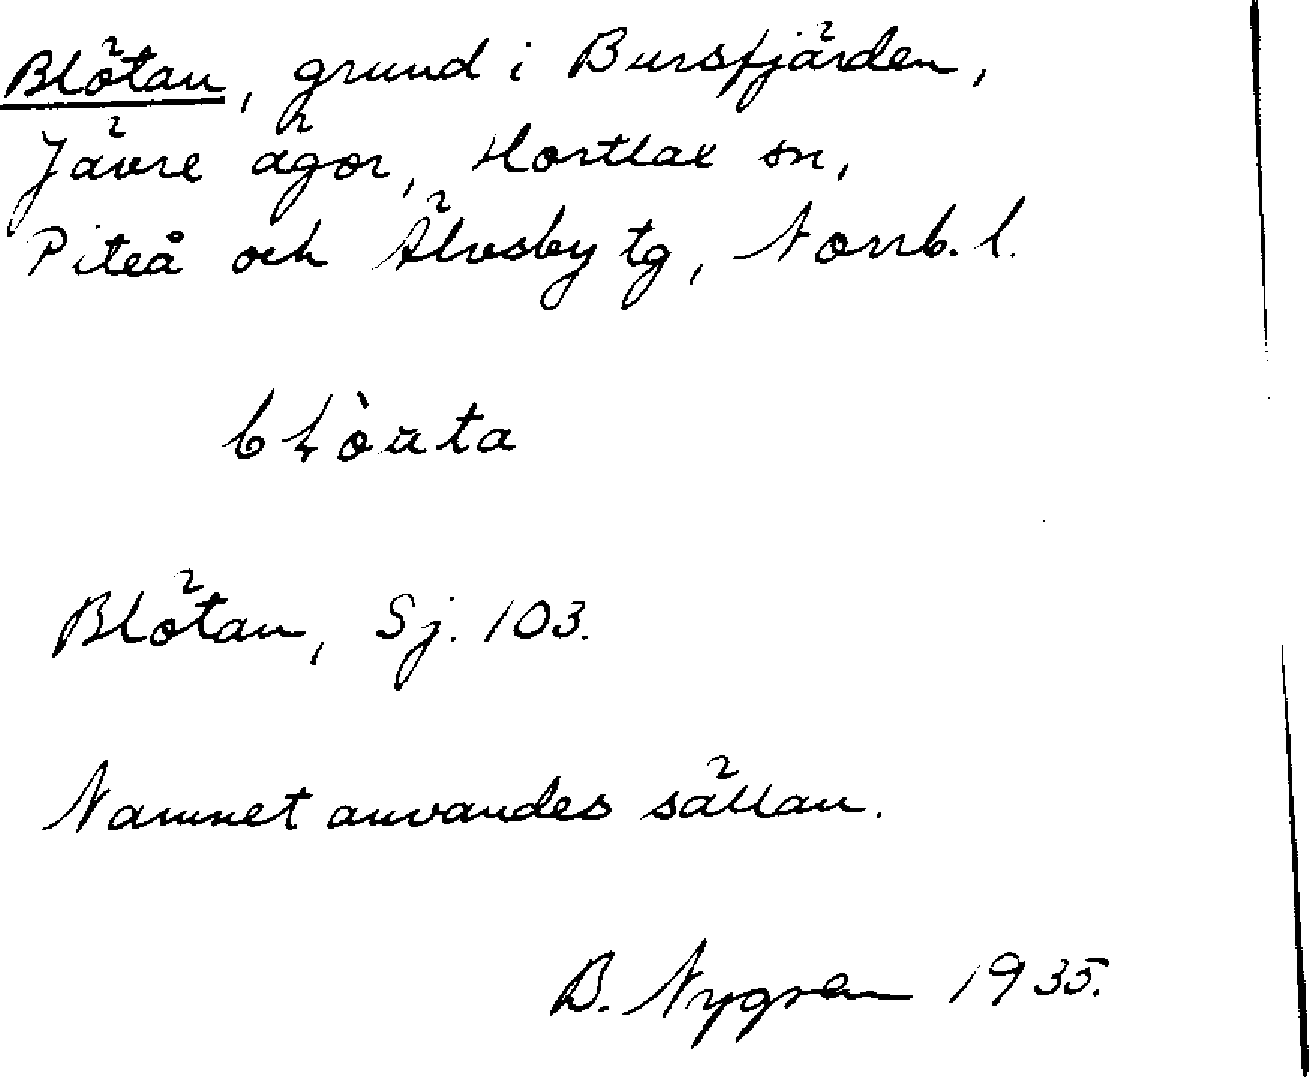 Blötan, grund i Bursfjärden,
Jävre ägor, Hortlax sn,
Piteå och Älvsby tg, Norrb. l.
Blötan, Sj. 103.
Namnet användes sällan.
B. Nygren 1935.